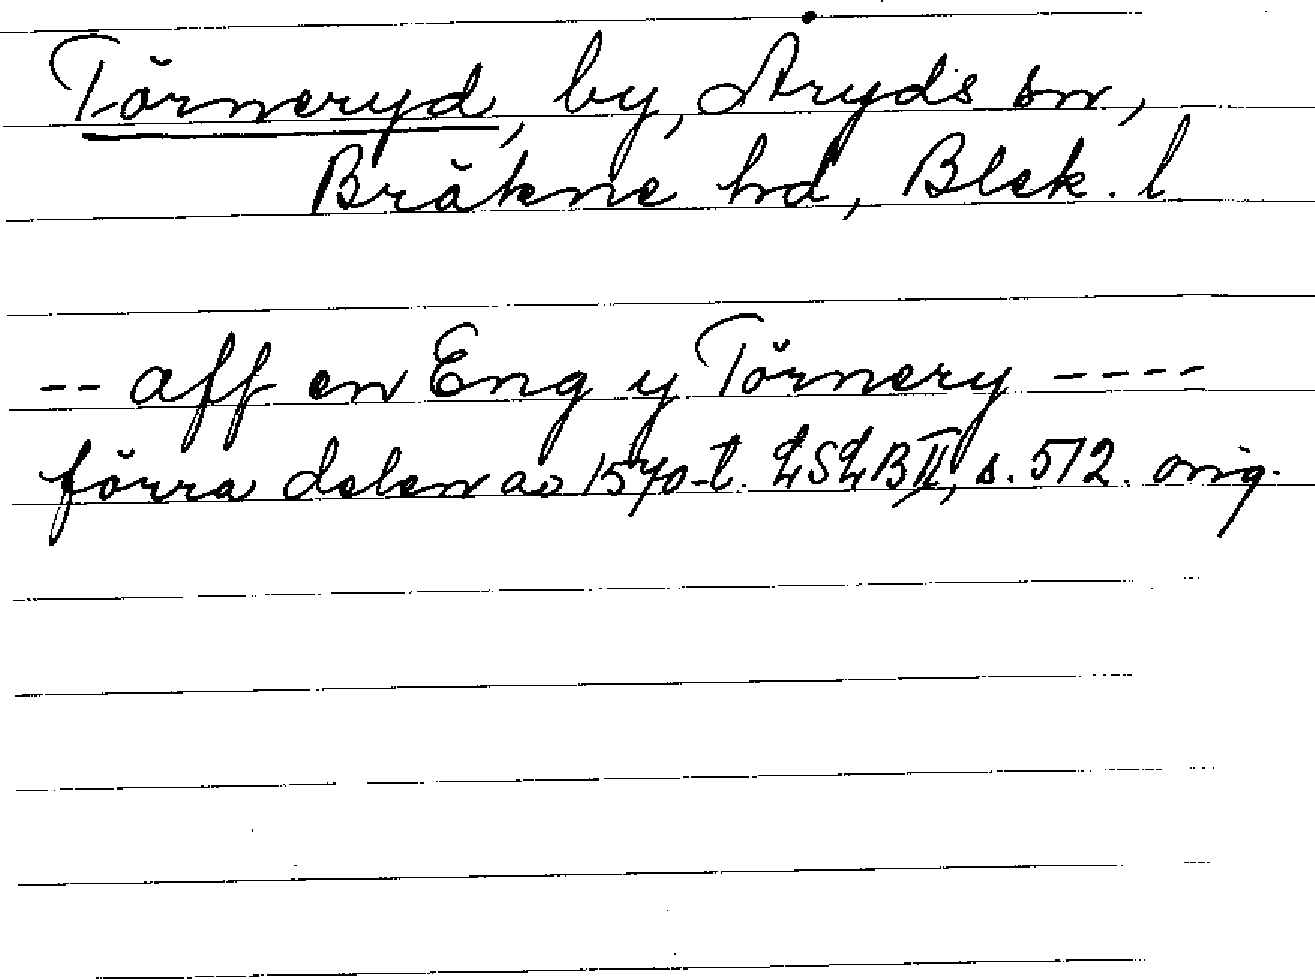 Törneryd, by, Åryds sn,
Bräkne hd, Blek. l
-- aff en Eng y Törnery ----
förra delen av 1570-t. LSLB II, s. 512. orig.